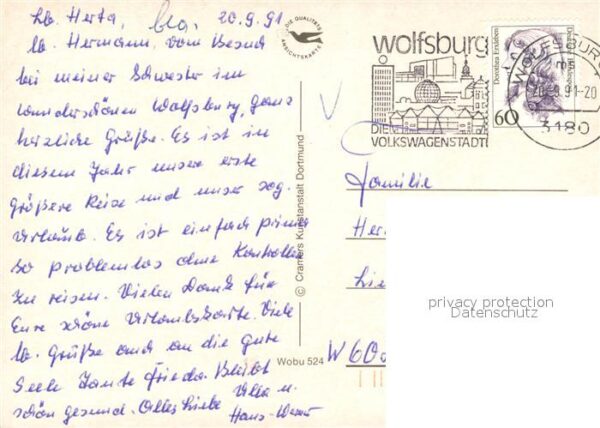 Lb. Herta, 20.9.91
lb. Hermann, vom Besuch
bei meiner Schwester im
wunderschönen Wolfsburg, ganz
herzliche Grüße. Es ist in
diesem Jahr unsere erste
größere Reise und unser sog.
Urlaub. Es ist einfach prima
so problemlos ohne Kontrollen
zu reisen. Vielen Dank für
Eure schöne Urlaubskarte. Viele
lb. Grüße auch an die gute
Seele Tante Frieda. Bleibt
schön gesund. Alles Liebe u.
Hans-Werner
DIE QUALITÄTS
ANSICHTSKARTE
© Cramers Kunstanstalt Dortmund
Wobu 524
wolfsburg
DIE
VOLKSWAGENSTADT
Dorothea Erxleben
Deutsche Bundespost
60
WOLFSBURG
ms
20.-9.91-20
3180
Familie
Her
Lie
W 60
privacy protection
Datenschutz